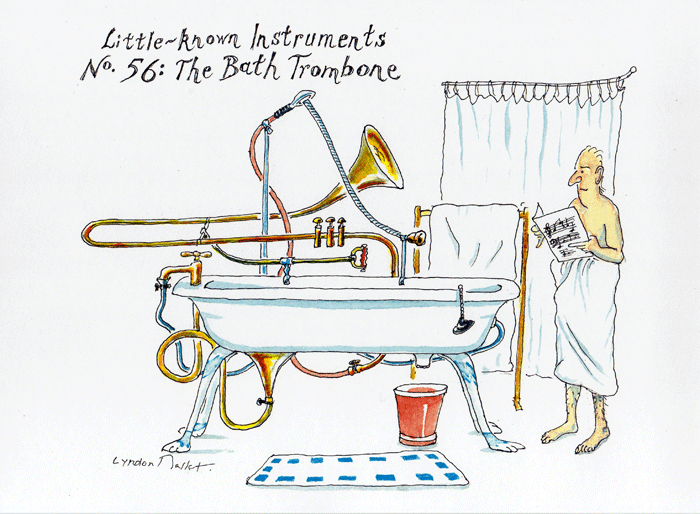 Little~known Instruments
No. 56: The Bath Trombone
Lyndon